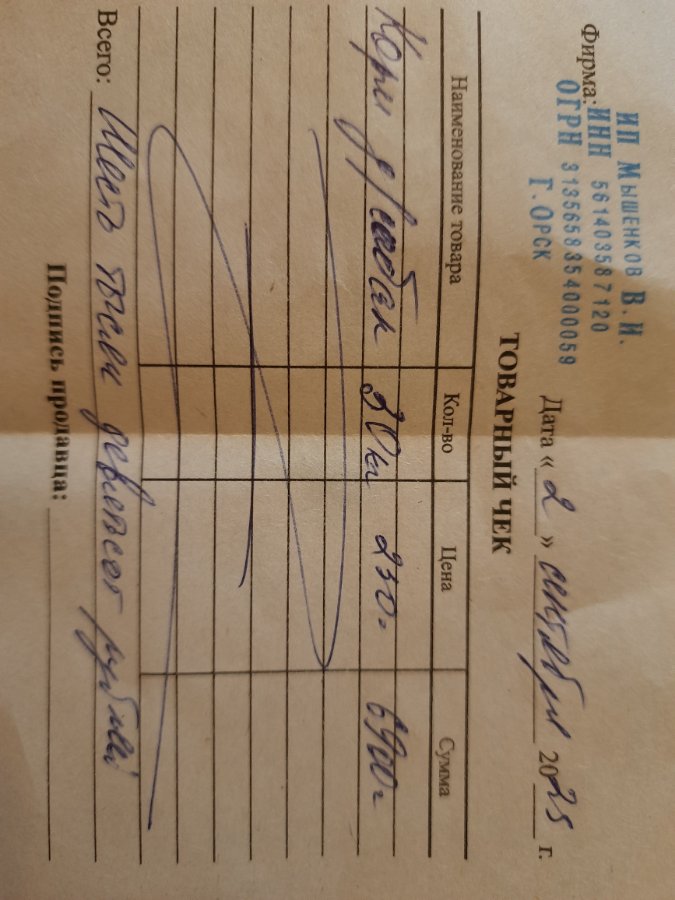 ИП Мышенков В.И.
Фирма: ИНН 561403587120
ОГРН 313565835400059
Г. Орск
Дата « 2 » сентября 2025 г.
ТОВАРНЫЙ ЧЕК
Наименование товара Кол-во Цена Сумма
Корм д/собак 30кг 230= 6900=
Всего: Шесть тысяч девятьсот рублей
Подпись продавца: